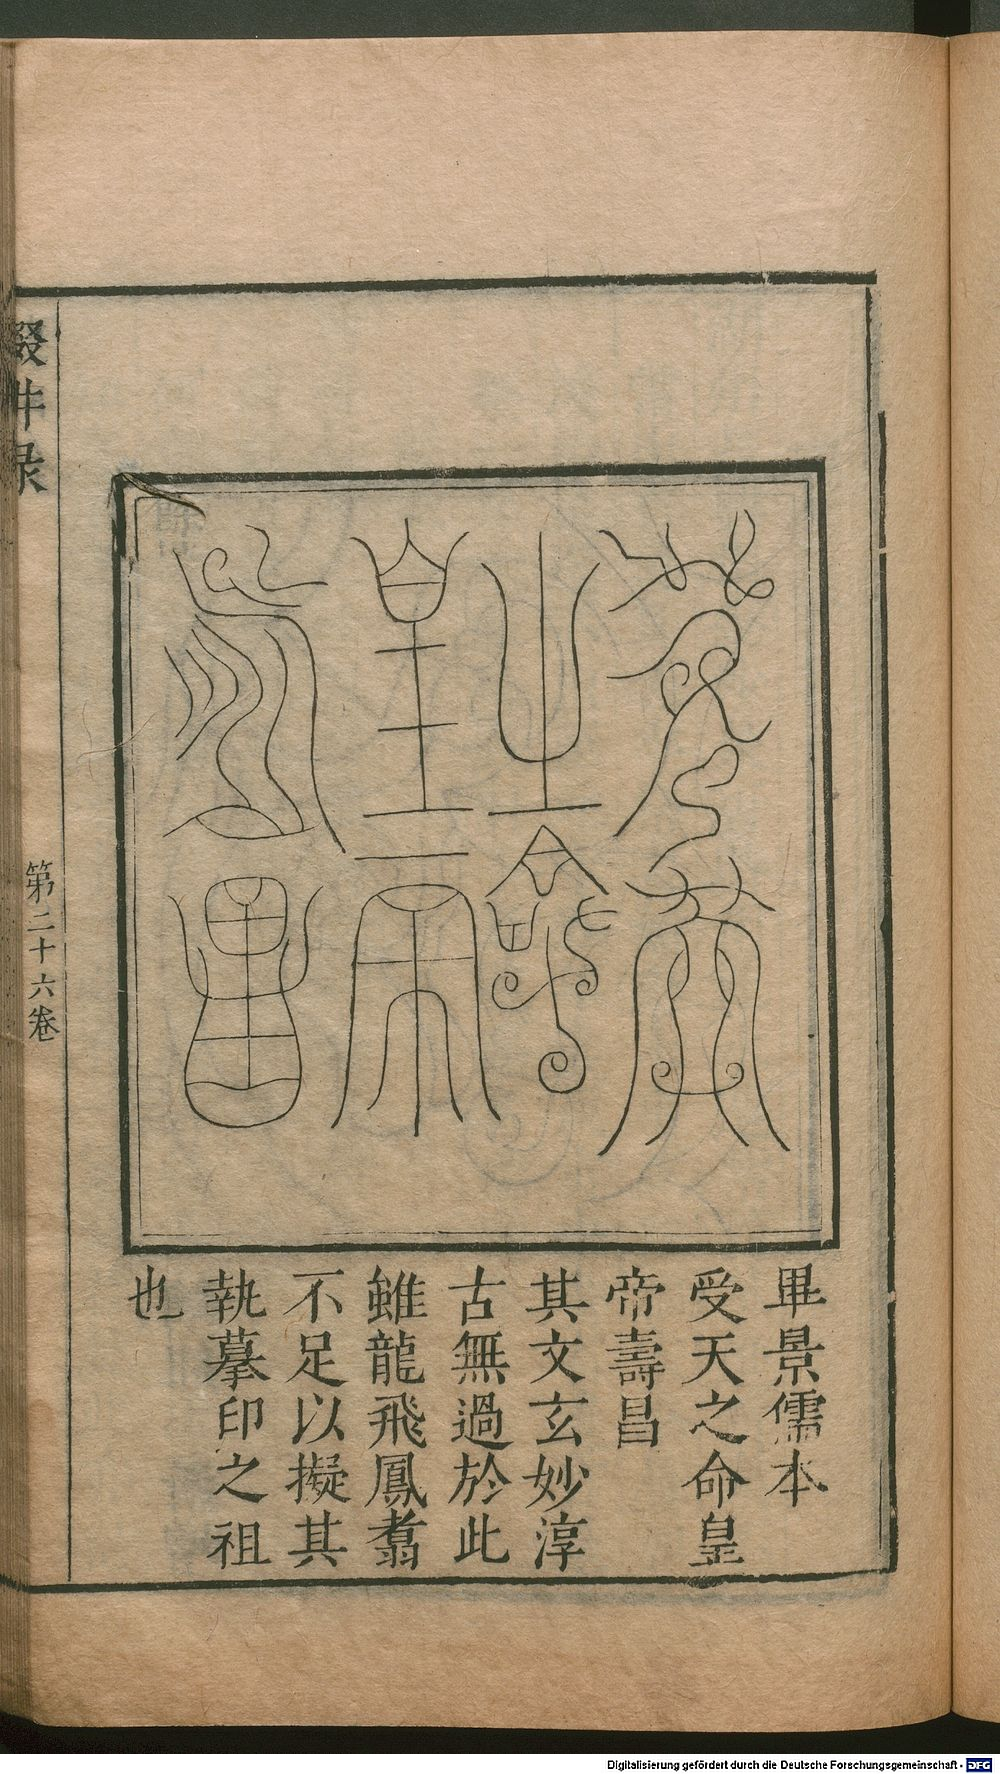 受天之命皇帝壽昌
畢景儒本
受天之命皇
帝壽昌
其文玄妙淳
古無過於此
雖龍飛鳳翥
不足以擬其
執摹印之祖
也
輟耕录
第二十六卷
Digitalisierung gefördert durch die Deutsche Forschungsgemeinschaft - DFG